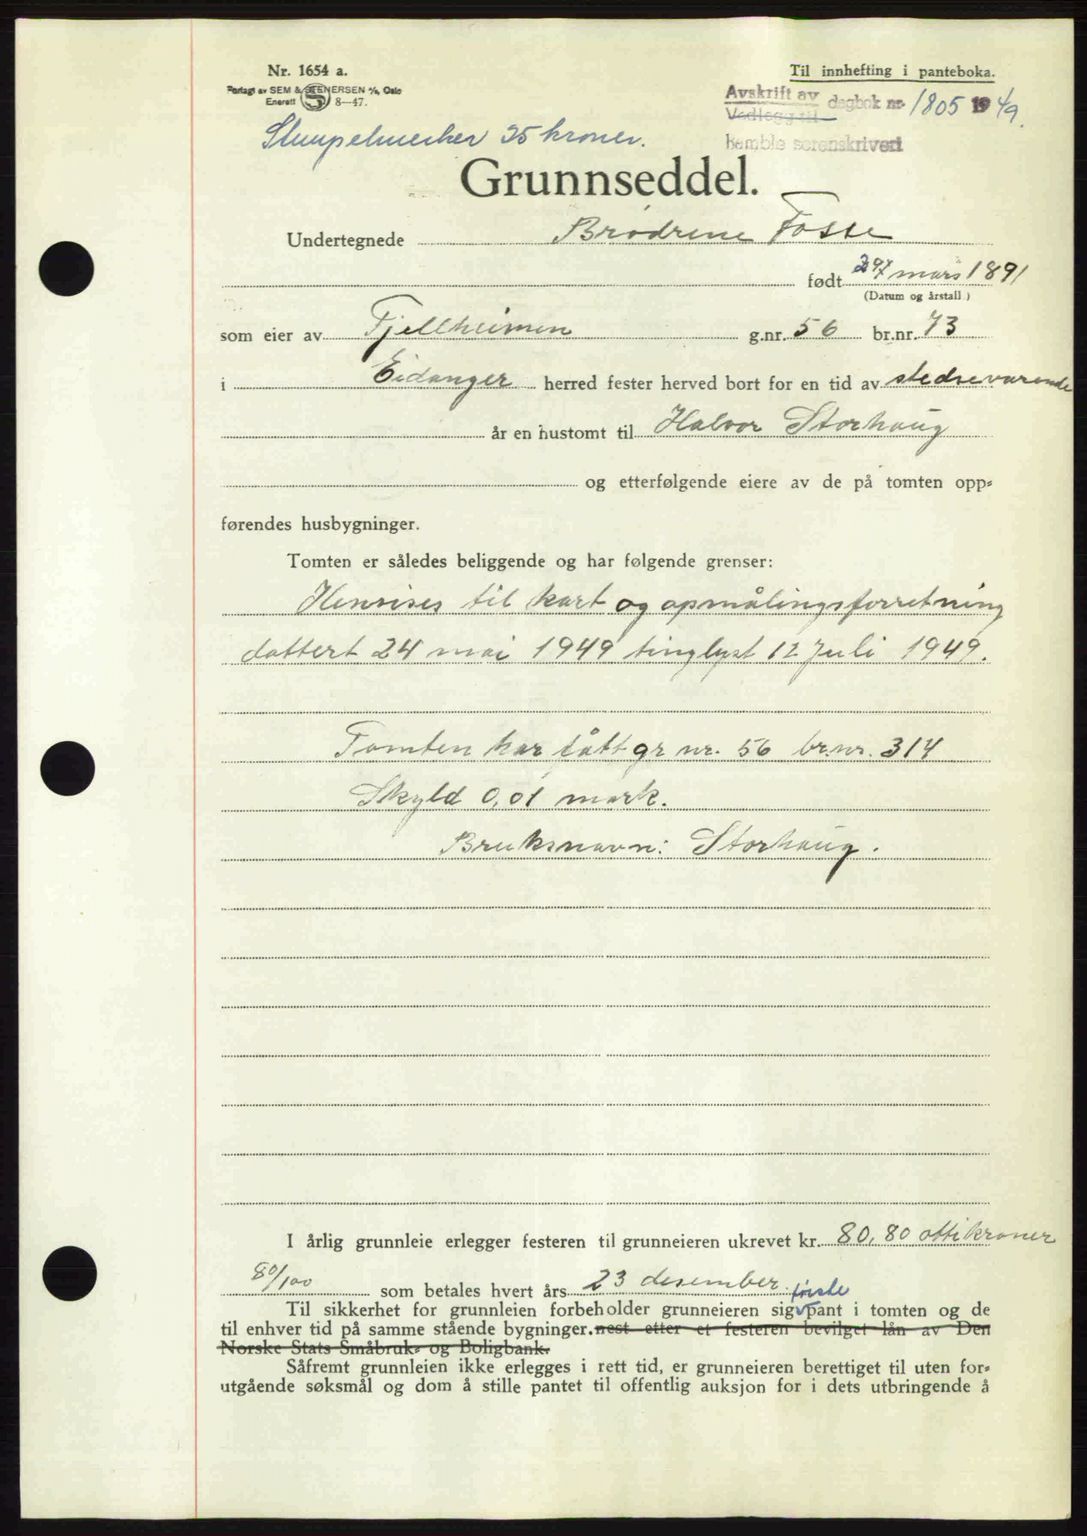 Nr. 1654 a.
Forlagt av SEM & STENERSEN A/S, Oslo
Enerett S 8—47.
Til innhefting i panteboka.
Avskrift av dagbok nr. 1805 1949.
Vedlegg til
bamble sorenskriveri
Stempelmerker 25 kroner.
Grunnseddel.
Undertegnede Brødrene Fosse
født 29/ mars 1891
(Datum og årstall)
som eier av Fjellheimen g.nr. 56 br.nr. 73
i Eidanger herred fester herved bort for en tid av stedsevarende
år en hustomt til Halvor Storhaug
og etterfølgende eiere av de på tomten opp-
førendes husbygninger.
Tomten er således beliggende og har følgende grenser:
Henvises til kart og opmålingsforretning
dattert 24 mai 1949 tinglyst 12 Juli 1949.
Tomten har fått gr nr. 56 br.nr. 314
Skyld 0,01 mark.
Bruksnavn: Storhaug.
I årlig grunnleie erlegger festeren til grunneieren ukrevet kr. 80,80 ottikroner
80/100 som betales hvert års 23 desember
første
Til sikkerhet for grunnleien forbeholder grunneieren sig pant i tomten og de
til enhver tid på samme stående bygninger. nest etter et festeren bevilget lån av Den
Norske Stats Småbruk- og Boligbank.
Såfremt grunnleien ikke erlegges i rett tid, er grunneieren berettiget til uten for-
utgående søksmål og dom å stille pantet til offentlig auksjon for i dets utbringende å